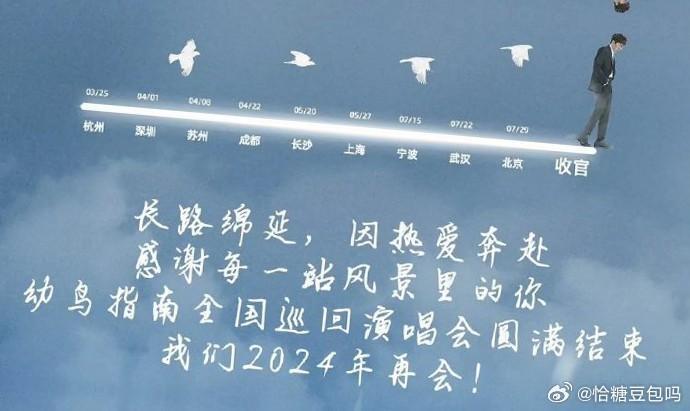 03/25 04/01 04/08 04/22 05/20 05/27 07/15 07/22 07/29
杭州 深圳 苏州 成都 长沙 上海 宁波 武汉 北京 收官
长路绵延，因热爱奔赴
感谢每一站风景里的你
幼鸟指南全国巡回演唱会圆满结束
我们2024年再会！
@恰糖豆包吗